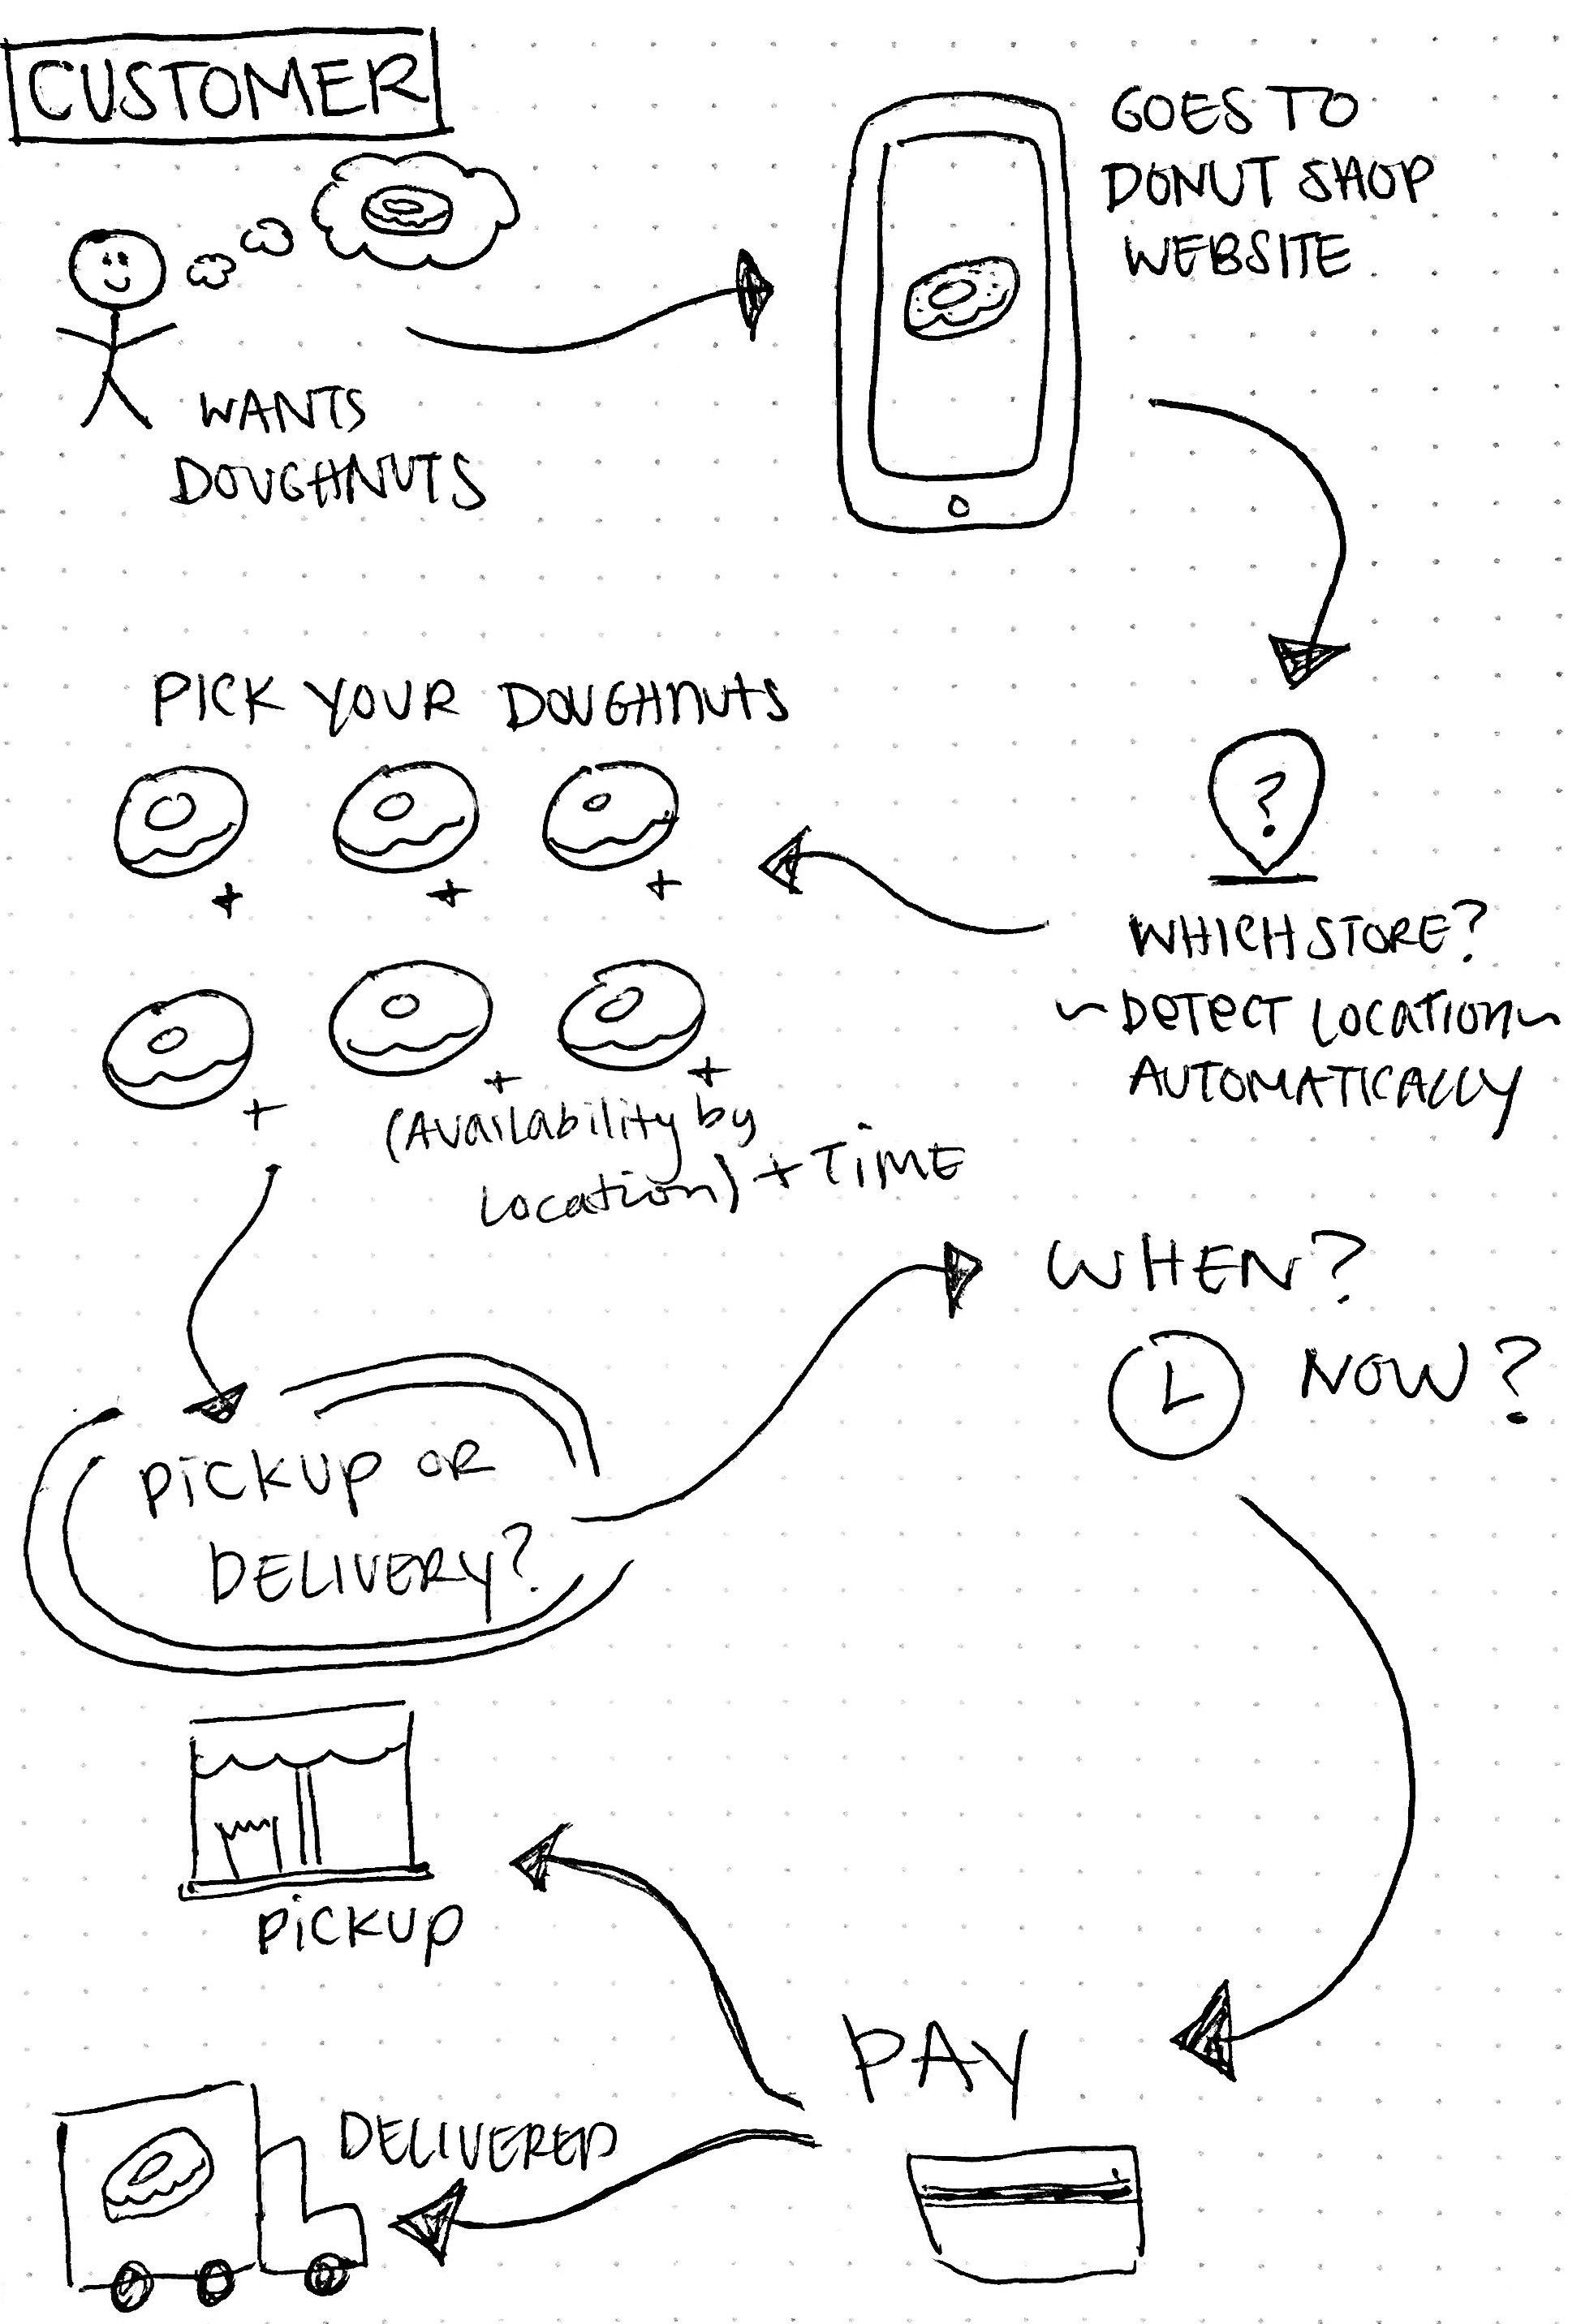 CUSTOMER
WANTS
DOUGHNUTS
GOES TO
DONUT SHOP
WEBSITE
?
WHICH STORE?
~ DETECT LOCATION ~
AUTOMATICALLY
PICK YOUR DOUGHNUTS
+ + +
+ + +
(Availability by
location) + TIME
PICKUP OR
DELIVERY?
WHEN?
NOW?
PAY
PICKUP
DELIVERED